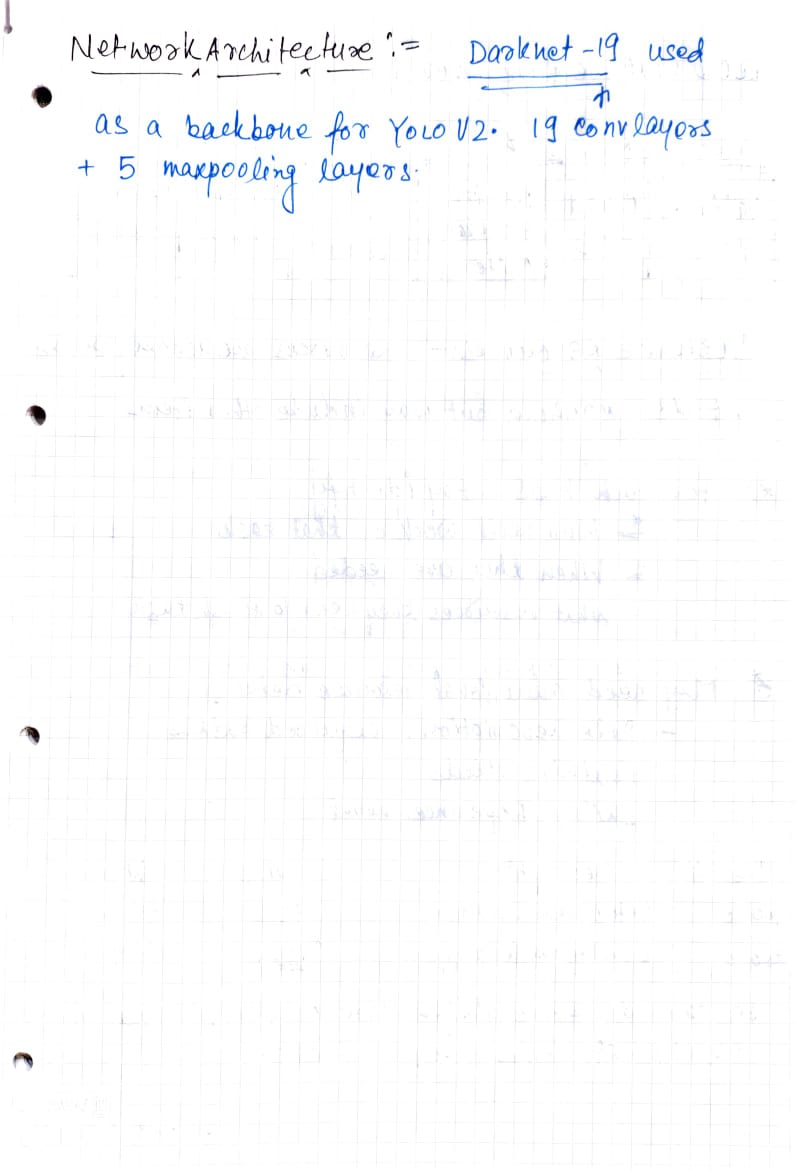 Network Architecture := Darknet-19 used
as a backbone for YOLO V2. 19 conv layers
+ 5 maxpooling layers.